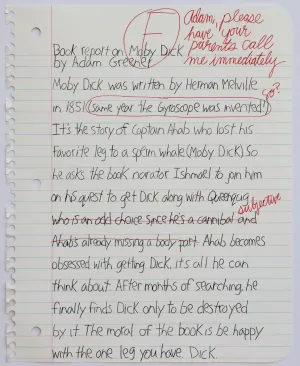 F
Adam, please
have your
parents call
me immediately
Book report on Moby Dick
by Adam Greener
Moby Dick was written by Herman Melville
so?
in 1851 (same year the Gyroscope was invented!)
It's the story of Captain Ahab who lost his
favorite leg to a sperm whale (Moby Dick) So
he asks the book narator Ishmael to join him
on his quest to get Dick along with Queequeg
subjective
who is an odd choice since he's a cannibal and
Ahab's already missing a body part. Ahab becomes
obsessed with getting Dick, it's all he can
think about. After months of searching, he
finally finds Dick only to be destroyed
by it. The moral of the book is be happy
with the one leg you have Dick.